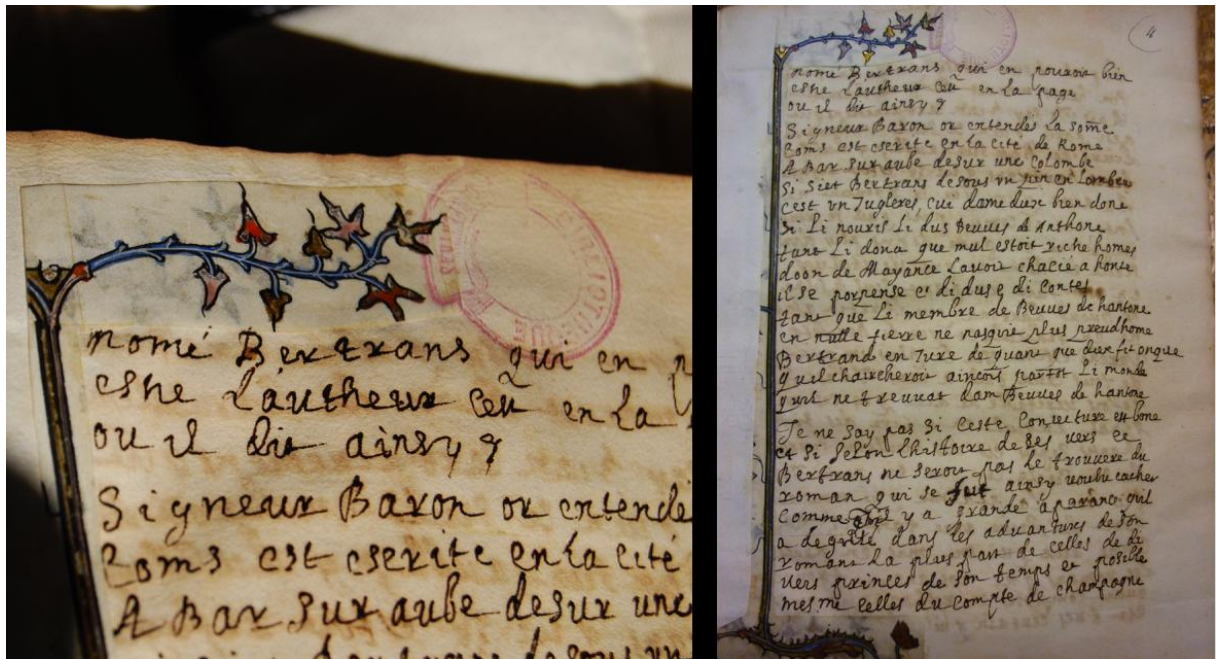 nomé Bertrans qui en
estre L'autheur Ceu en La
ou il dit ainsy
Signeur Baron or entendé
Coms est escrite en La cité
A Bar sur aube desur une
nomé Bertrans qui en pouroit bien
estre L'autheur Ceu en La page
ou il dit ainsy
Signeur Baron or entendés La some
Coms est escrite en La cité de Rome
A Bar sur aube desur une Colombe
Si siet Bertrans desous vn pin en Lombre
Cest vn Jugleres, cui dame dux bien done
Si Li nouris Li dus Beuues d Anthone
tant Li dona que mul estoit riche homes
doon de Mayance Lauoit chacié a honte
il se porpense di dus di contes
tant que Li membre de Beuues de hantone
en nulle tierre ne nasquie plus preudhome
Bertrand en Jure de quant que dux fit onque
quil chaircheroit ainçois partot Li monde
quil ne treuuat dam Beuues de hantone
Je ne say pas si Ceste Coniecture est bone
et si selon Lhistoire de ses vers ce
Bertrans ne seroit pas Le trouuere du
roman qui se fut ainsy voulu cacher
Comme il y a grande aparance quil
a degrité dans les aduantures de son
romans La plus part de celles de di
uers princes de son temps et posible
mesme celles du Compte de champagne